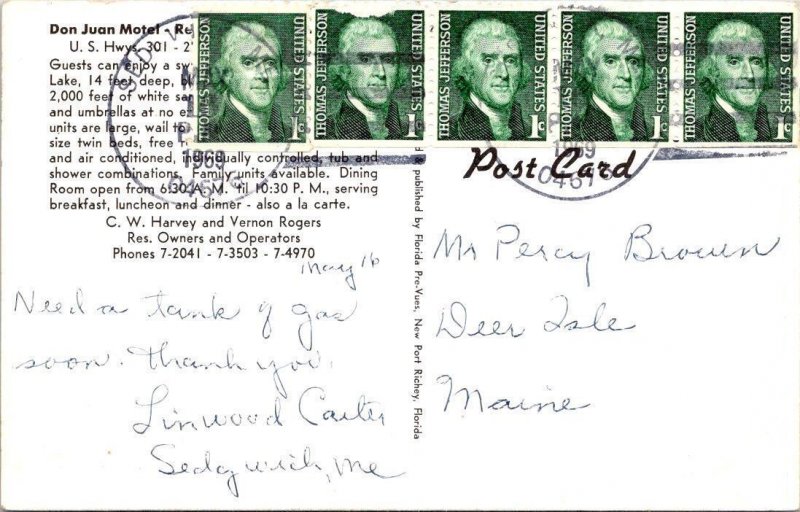 Don Juan Motel - Re
U. S. Hwys. 301 - 2
Guests can enjoy a sw
Lake, 14 feet deep, bl
2,000 feet of white sa
and umbrellas at no e
units are large, wall to
size twin beds, free
and air conditioned, individually controlled, tub and
shower combinations. Family units available. Dining
Room open from 6:30 A. M. 'til 10:30 P. M., serving
breakfast, luncheon and dinner - also a la carte.
C. W. Harvey and Vernon Rogers
Res. Owners and Operators
Phones 7-2041 - 7-3503 - 7-4970
May 16
Need a tank of gas
soon. Thank you.
Linwood Carter
Sedgwick, Me
& published by Florida Pre-Vues, New Port Richey, Florida
THOMAS JEFFERSON UNITED STATES 1c
THOMAS JEFFERSON UNITED STATES 1c
THOMAS JEFFERSON UNITED STATES 1c
THOMAS JEFFERSON UNITED STATES 1c
THOMAS JEFFERSON UNITED STATES 1c
1969
Post Card
Mr Percy Brown
Deer Isle
Maine